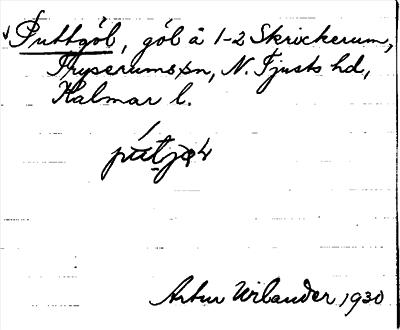 Puttgöl, göl å 1-2 Skrickerum,
Tryserums sn, N. Tjusts hd,
Kalmar l.
Artur Wilander 1930